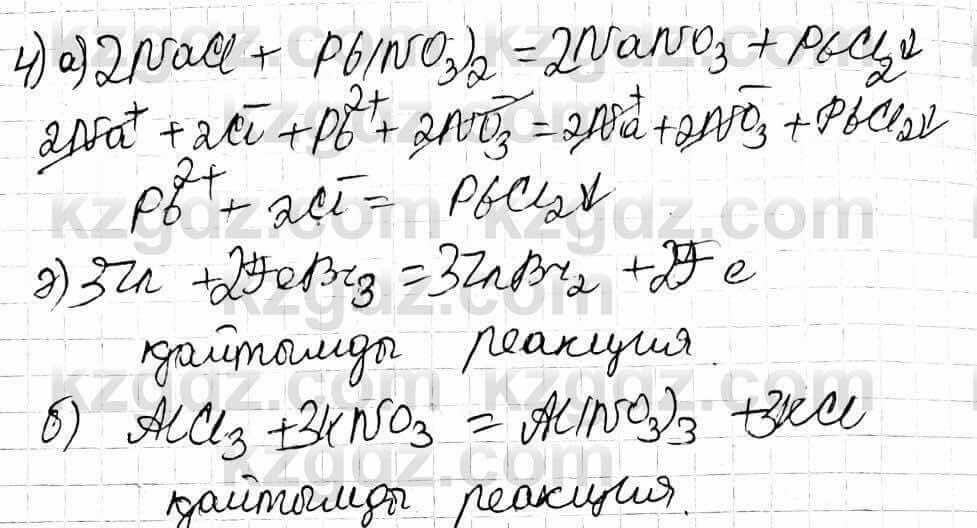 4) а) 2NaCl + Pb(NO₃)₂ = 2NaNO₃ + PbCl₂↓
2Na⁺ + 2Cl⁻ + Pb²⁺ + 2NO₃⁻ = 2Na⁺ + 2NO₃⁻ + PbCl₂↓
Pb²⁺ + 2Cl⁻ = PbCl₂↓
ә) 3Zn + 2FeBr₃ = 3ZnBr₂ + 2Fe
қайтымды реакция.
б) AlCl₃ + 3KNO₃ = Al(NO₃)₃ + 3KCl
қайтымды реакция.